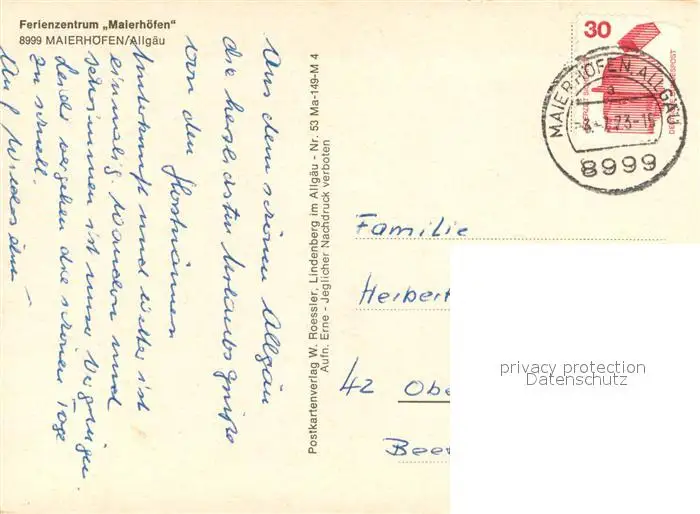 Ferienzentrum „Maierhöfen"
8999 MAIERHÖFEN/Allgäu
Aus dem schönen Allgäu
die herzlichsten Urlaubsgrüße
von den
Unterkunft und Wetter ist
einmalig. Wandern und
schwimmen ist unser Vergnügen.
Leider vergehen die schönen Tage
zu schnell.
Auf Wiedersehen –
Postkartenverlag W. Roessler, Lindenberg im Allgäu - Nr. 53 Ma-149-M 4
Aufn. Erne - Jeglicher Nachdruck verboten
30
DEUTSCHE BUNDESPOST
MAIERHÖFEN, ALLGÄU
a
8999
Familie
Herbert
42 Obe
Bee
privacy protection
Datenschutz